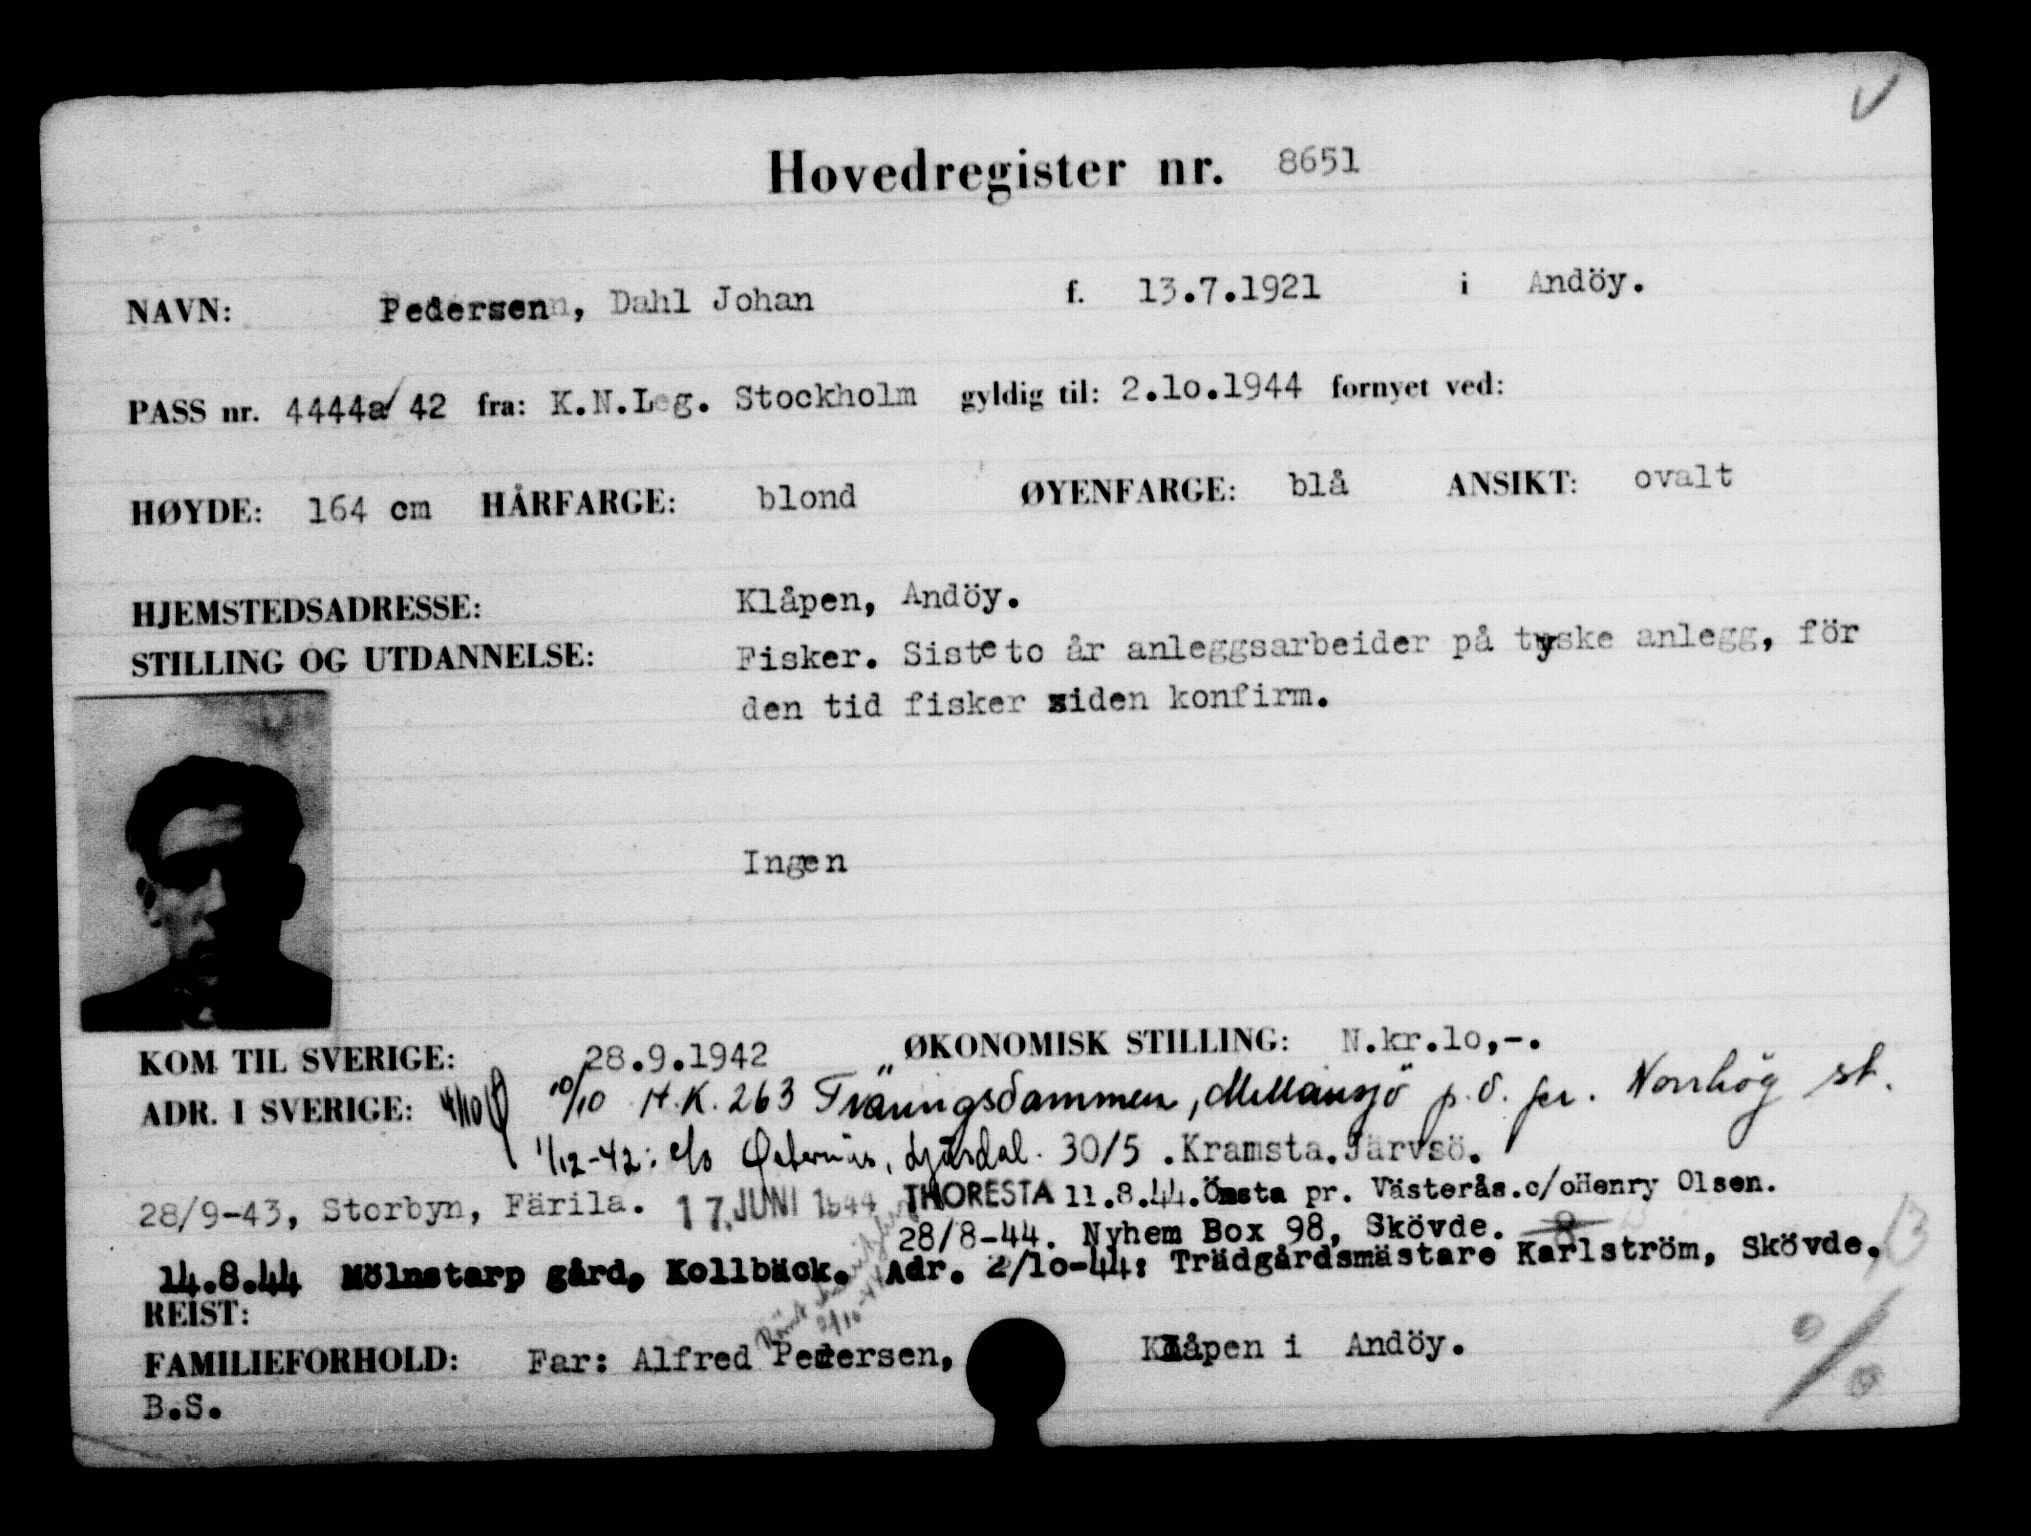 Hovedregister nr. 8651
NAVN: Pedersen, Dahl Johan f. 13.7.1921 i Andöy.
PASS nr. 4444a/42 fra: K.N.Leg. Stockholm gyldig til: 2.10.1944 fornyet ved:
HØYDE: 164 cm HÅRFARGE: blond ØYENFARGE: blå ANSIKT: ovalt
HJEMSTEDSADRESSE: Klåpen, Andöy.
STILLING OG UTDANNELSE: Fisker. Siste to år anleggsarbeider på tyske anlegg, för
den tid fisker siden konfirm.
Ingen
KOM TIL SVERIGE: 28.9.1942 ØKONOMISK STILLING: N.kr.lo,-.
ADR. I SVERIGE: 4/10 10/10 H.K. 263 Träringsdammen, Mellansjö p.å. per. Norrhög st.
1/12-42: c/o 30/5 .Kramsta.Järvsö.
28/9-43, Storbyn, Färila. 17. JUNI 1944 THORESTA 11.8.44.Önsta pr. Västerås.c/oHenry Olsen.
28/8-44. Nyhem Box 98, Skövde.
14.8.44 Mölnstarp gård, Kollbäck. Adr. 2/10-44: Trädgårdsmästare Karlström, Skövde.
REIST:
FAMILIEFORHOLD: Far: Alfred Pedersen, Klåpen i Andöy.
B.S.